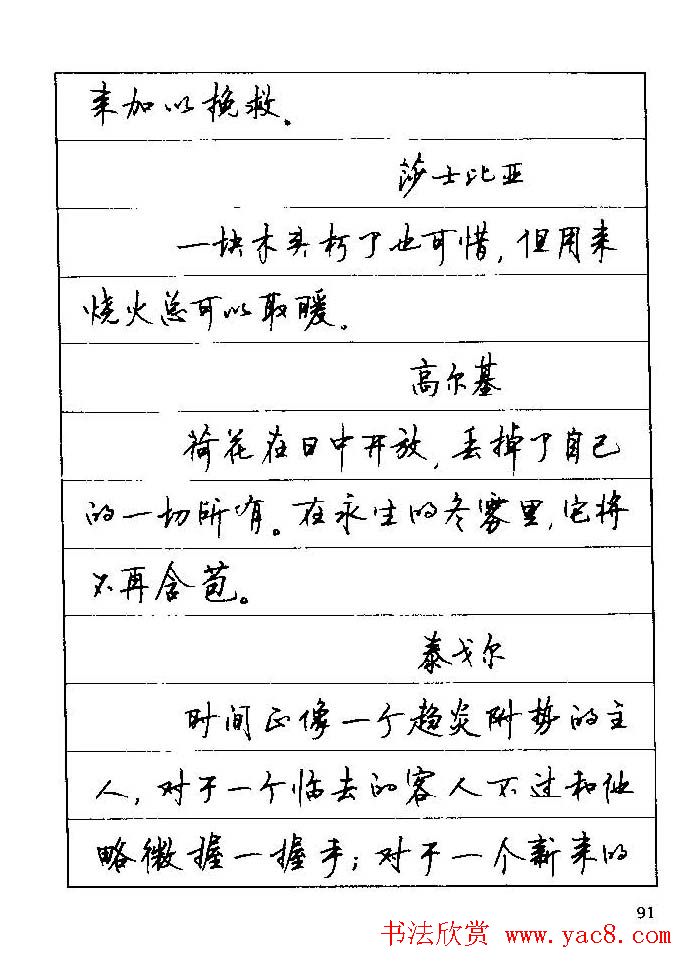 来加以挽救。
莎士比亚
一块木头朽了也可惜，但用来
烧火总可以取暖。
高尔基
荷花在日中开放，丢掉了自己
的一切所有。在永生的冬雾里，它将
不再含苞。
泰戈尔
时间正像一个趋炎附势的主
人，对于一个临去的客人不过和他
略微握一握手；对于一个新来的
91
书法欣赏 www.yac8.com